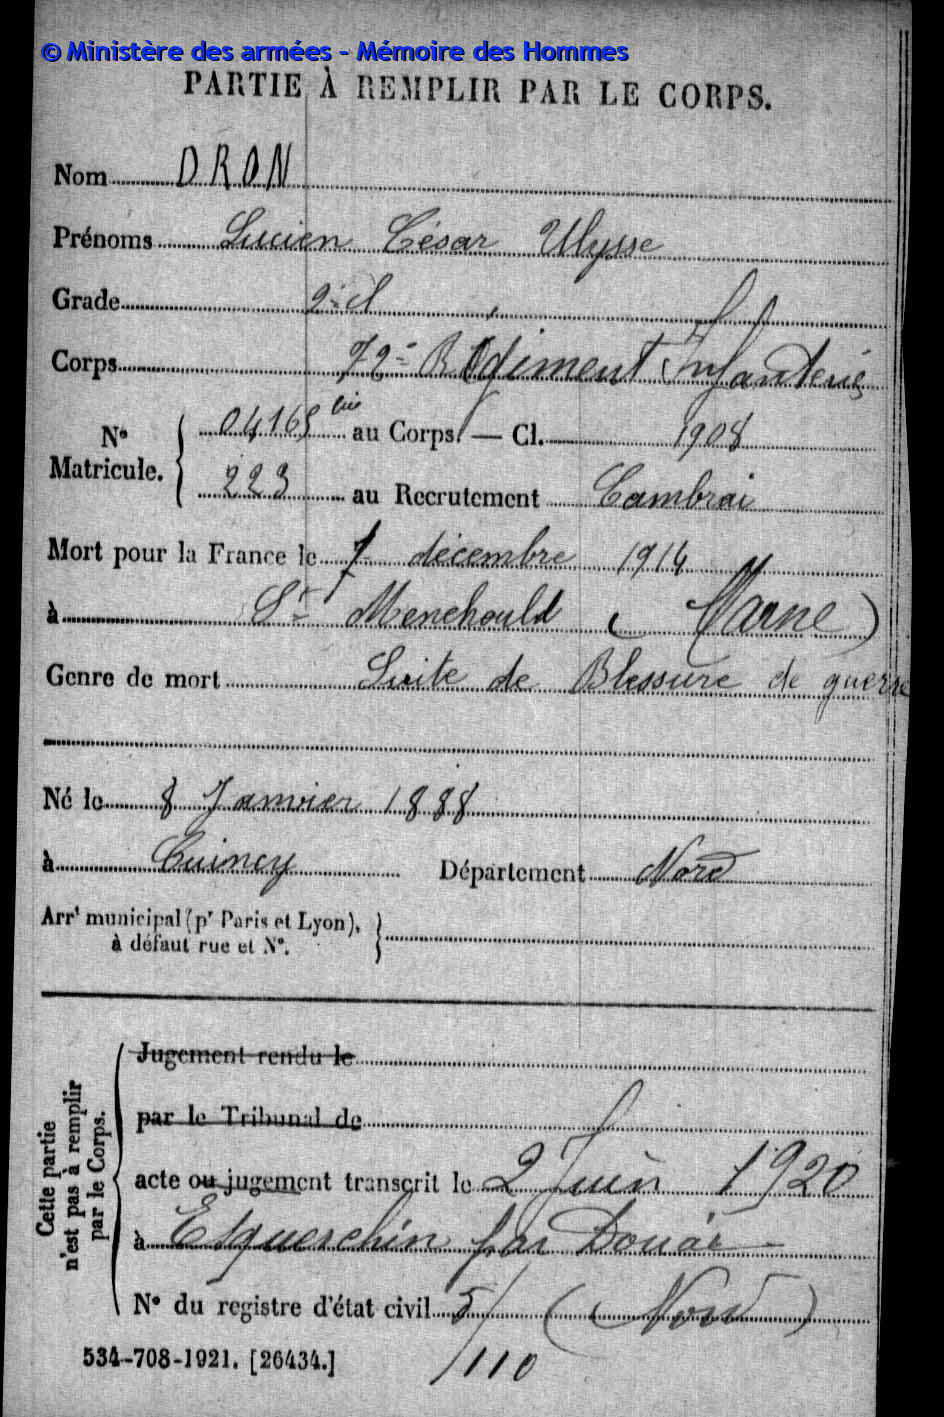 © Ministère des armées - Mémoire des Hommes
PARTIE À REMPLIR PAR LE CORPS.
Nom DRON
Prénoms Lucien César Ulysse
Grade 2e cl
Corps 72e Régiment Infanterie
N° Matricule. 04165 bis au Corps. — Cl. 1908
223 au Recrutement Cambrai
Mort pour la France le 7 décembre 1914
à Ste Menehould (Marne)
Genre de mort Suite de Blessure de guerre
Né le 8 Janvier 1888
à Cuincy Département Nord
Arrt municipal (pr Paris et Lyon),
à défaut rue et N°.
Cette partie n'est pas à remplir par le Corps.
Jugement rendu le
par le Tribunal de
acte ou jugement transcrit le 2 Juin 1920
à Esquerchin par Douai
N° du registre d'état civil 5/ (Nord)
534-708-1921. [26434.] /110